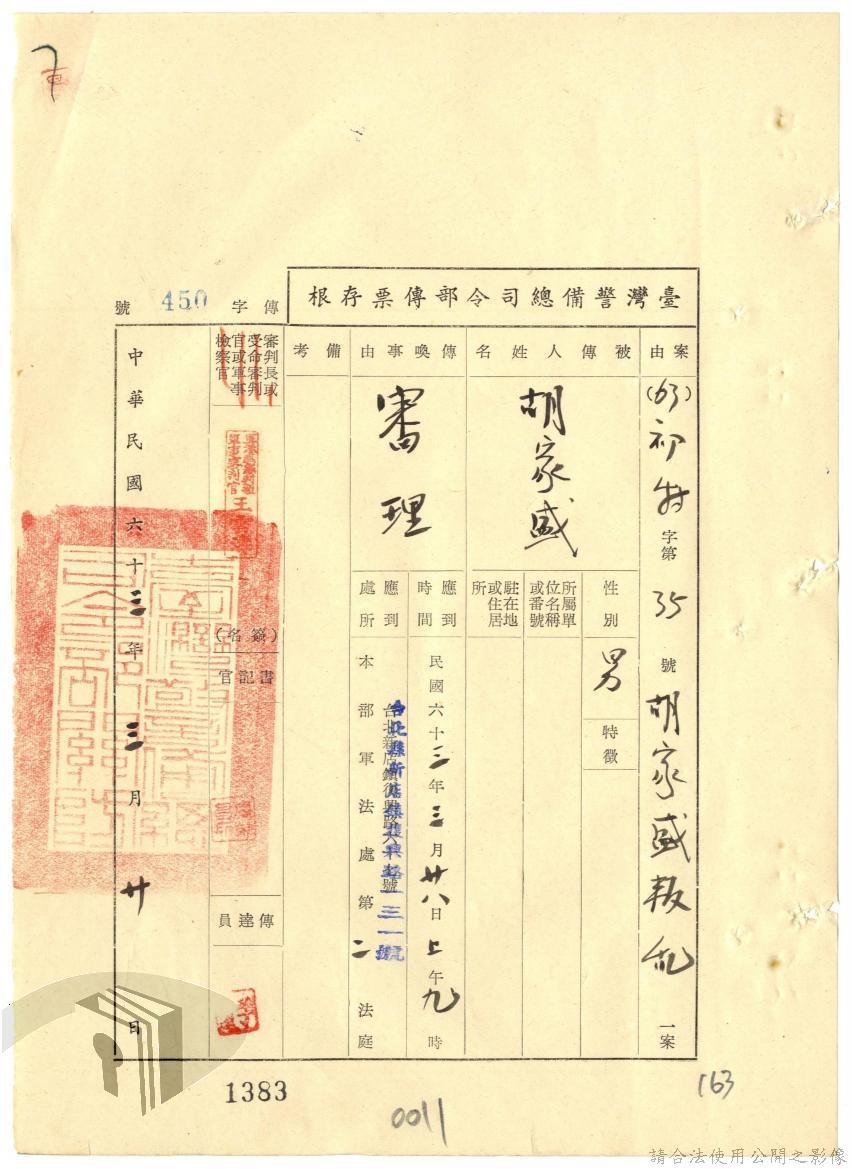 臺灣警備總司令部傳票存根
傳字450號
案由
(63)初特字第35號胡家盛叛亂一案
被傳人姓名
胡家盛
性別
男
特徵
所屬單位名稱或番號
駐在地或住居所
傳喚事由
審理
應到時間
民國六十三年三月廿八日上午九時
應到處所
台北縣新店鎮復興路一三一號
本部軍法處第二法庭
備考
審判長或受命審判官或軍事檢察官
(簽名)
書記官
傳達員
中華民國六十三年三月廿日
1383
0011
163
請合法使用公開之影像